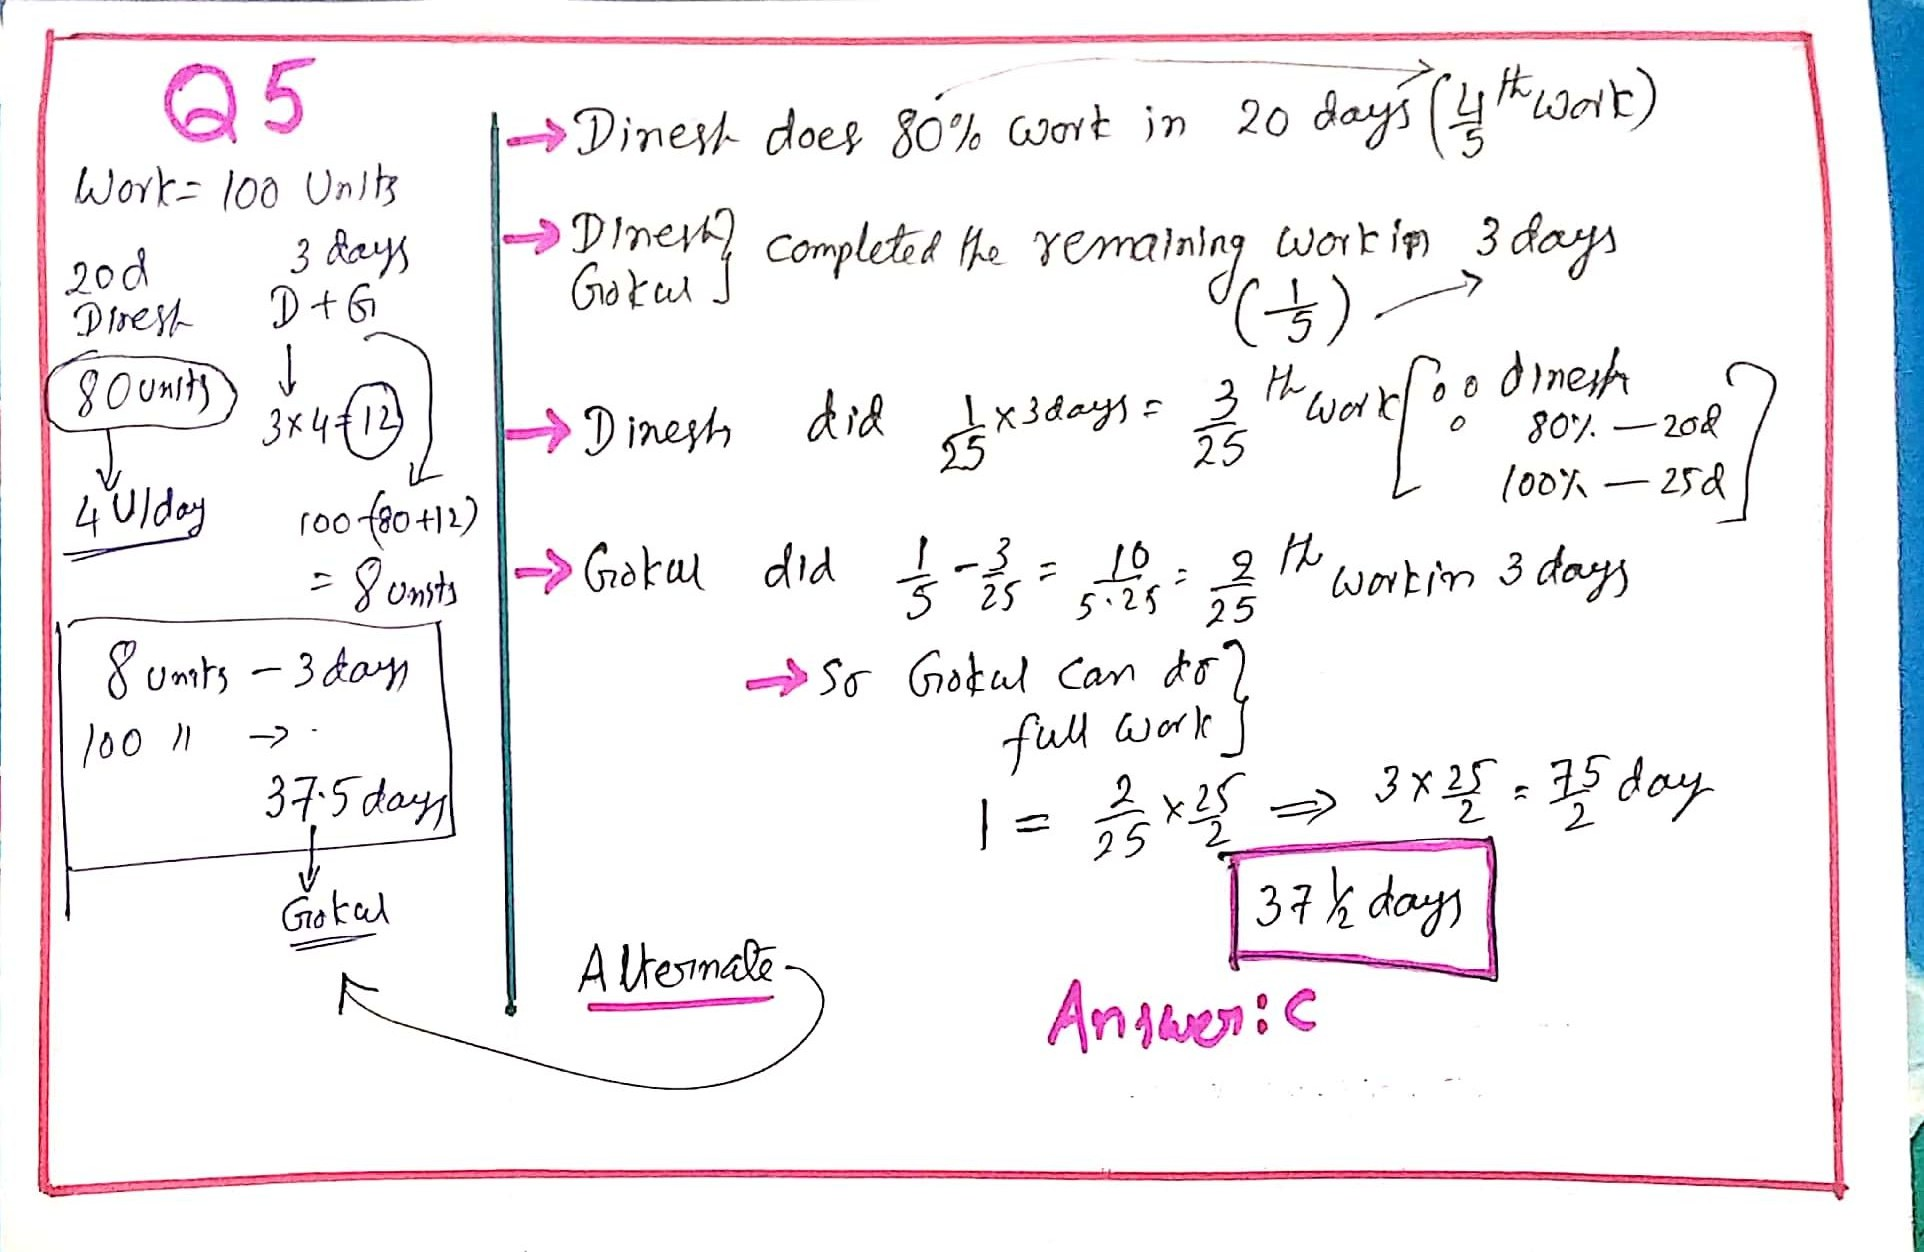 Q5
Work = 100 Units
20d 3 days
Dinesh D + G
80 units
3x4=12
4 U/day
100-(80+12)
= 8 units
8 units - 3 days
100 " →
37.5 days
Gokul
→ Dinesh does 80% work in 20 days (4/5 th work)
→ Dinesh } completed the remaining work in 3 days
Gokul }
(1/5)
→ Dinesh did 1/25 x 3 days = 3/25 th work [ ∵ dinesh
80% — 20d
100% — 25d ]
→ Gokul did 1/5 - 3/25 = 10/5·25 = 2/25 th work in 3 days
→ So Gokul can do }
full work }
1 = 2/25 x 25/2 ⇒ 3 x 25/2 = 75/2 day
37 1/2 days
Alternate
Answer: C